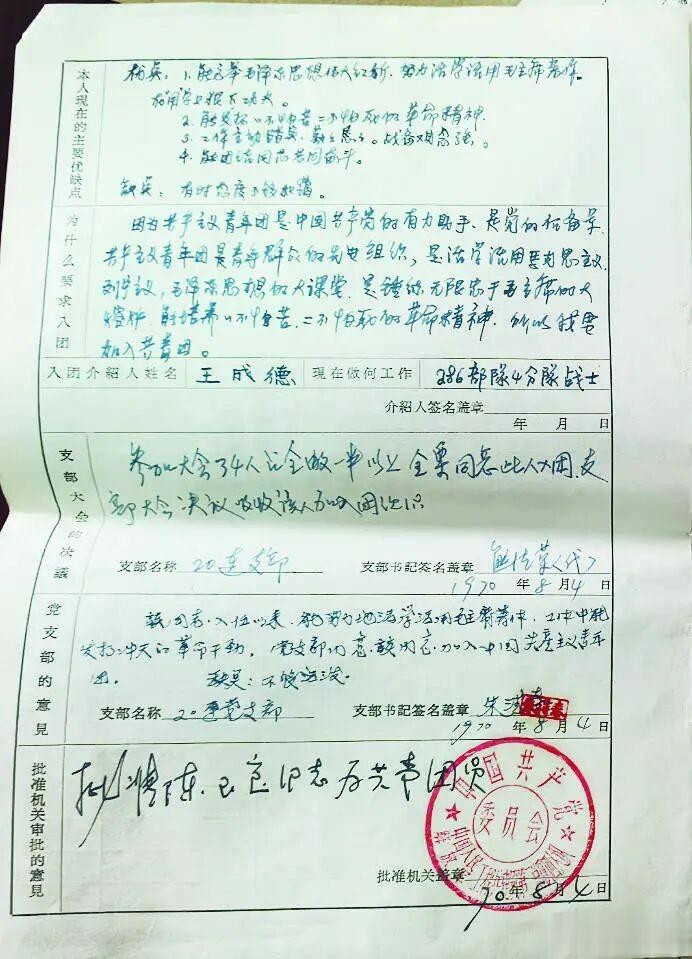 本人现在的主要优缺点
优点：1. 能高举毛泽东思想伟大红旗，努力活学活用毛主席著作。
在用字上狠下功夫。
2. 能发扬一不怕苦二不怕死的革命精神。
3. 工作主动
战备观念强。
4. 能团结同志共同奋斗。
缺点：有时态度不够和蔼。
为什么要求入团
因为共产主义青年团是中国共产党的有力助手，是党的后备军，
共产主义青年团是青年群众的先进组织，是活学活用马列主义，
毛泽东思想的大课堂，是锤炼无限忠于毛主席的大
熔炉，能培养一不怕苦，二不怕死的革命精神，所以我要
加入共青团。
入团介紹人姓名 王成德 现在做何工作 286部隊4分隊战士
介紹人签名蓋章
年 月 日
支部大会的决議
参加大会 全票同意此人入团，支
部大会决议吸收该人为团组织
支部名称 20连支部 支部书記签名蓋章 (代)
1970年8月4日
党支部的意見
该同志入伍以来，能努力地活学活用毛主席著作，工作中能
发扬冲天的革命干劲，党支部同意该同志加入中国共产主义青年
团。 缺点：不够活泼。
支部名称 20连党支部 支部书記签名蓋章 朱
1970年8月4日
批准机关审批的意見
批准陈 同志为共青团员
中国共产党
委员会
中国人民
批准机关蓋章
70年8月4日